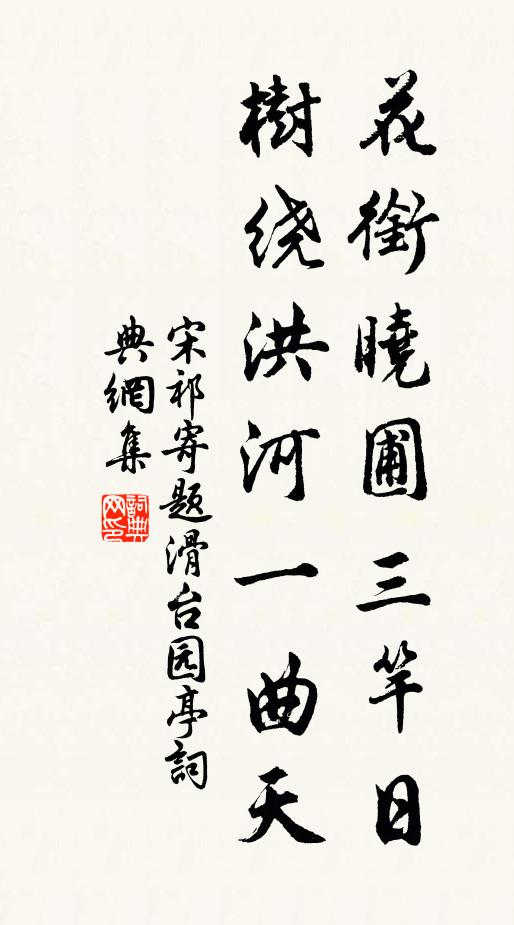 花銜曉圃三竿日
樹绕洪河一曲天
宋祁寄题滑台园亭詞
典網集
詞典
网印